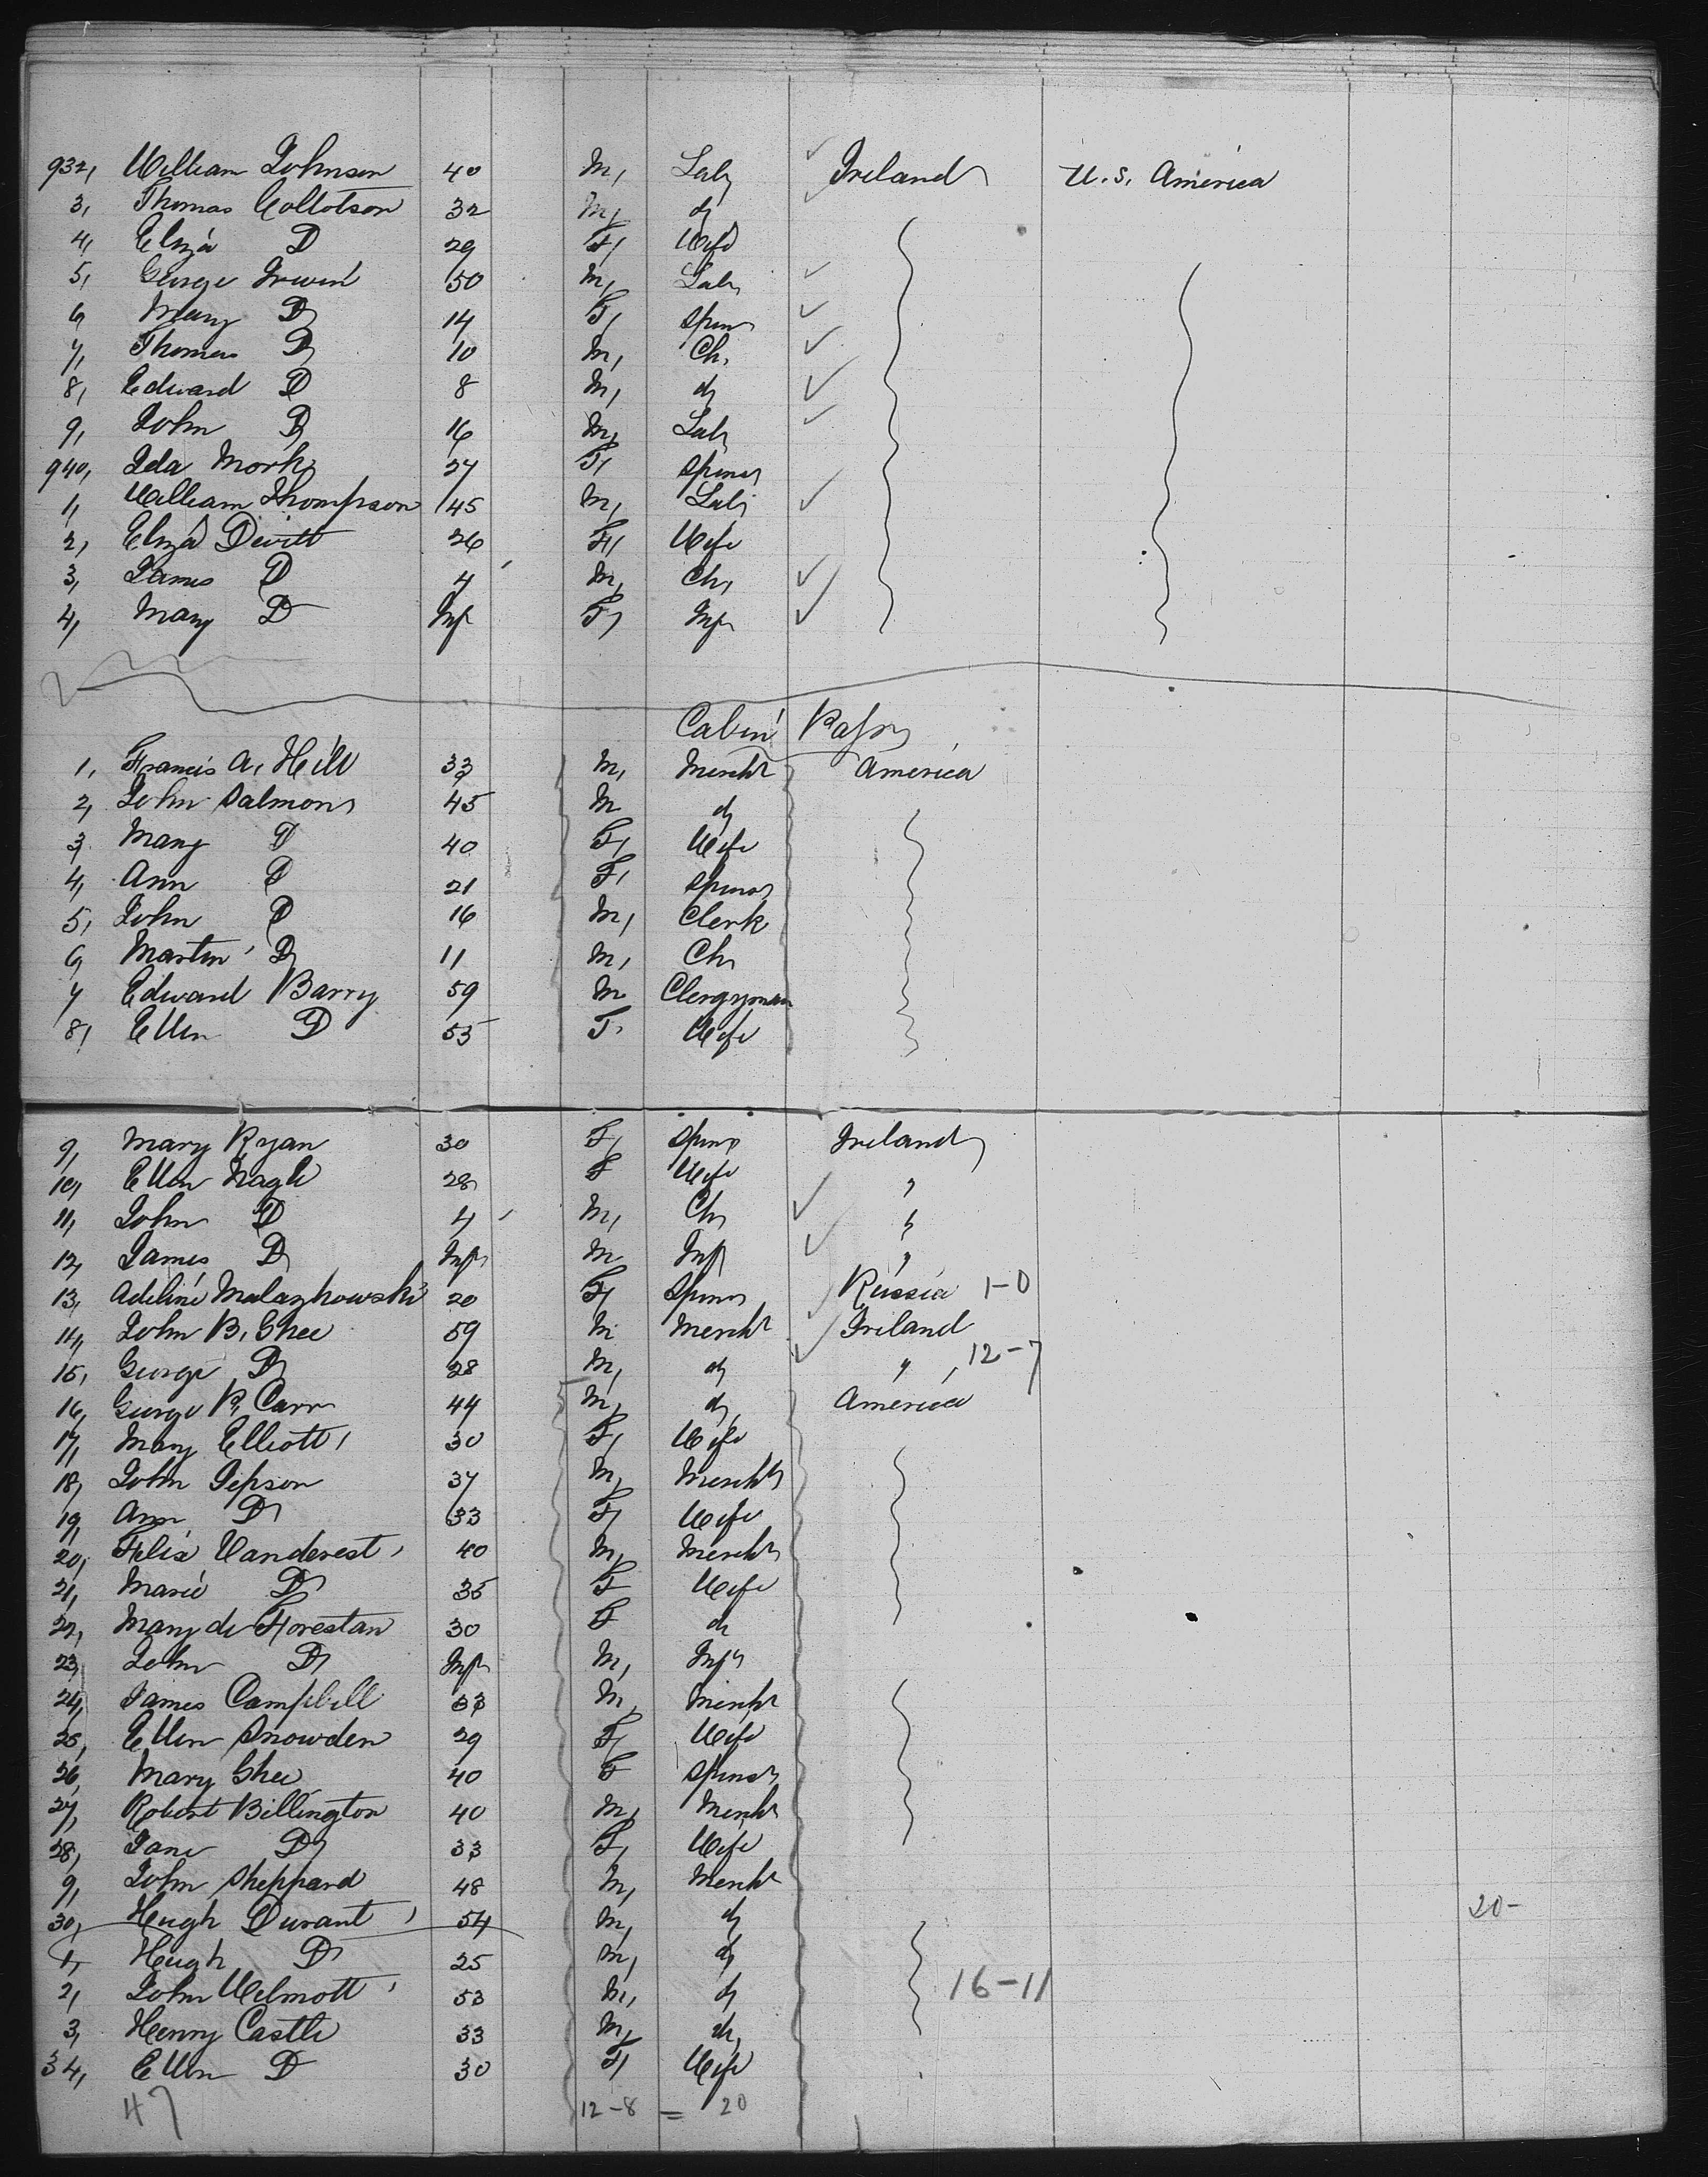 932, William Johnson 40 M, Labr Ireland U.S. America
3, Thomas Collotson 32 M, do
4, Eliza Do 29 F, Wife
5, George Irwin 50 M, Labr
6, Mary Do 14 F, Spinr
7, Thomas Do 10 M, Ch,
8, Edward Do 8 M, do
9, John Do 16 M, Labr
940, Ida Mork 27 F, Spinr
1, William Thompson 45 M, Labr
2, Eliza Devitt 26 F, Wife
3, James Do 4 M, Ch,
4, Mary Do Inft F, Inft
Cabin Passrs
1, Francis A, Hill 33 M, Mercht America
2, John Salmons 45 M do
3, Mary Do 40 F, Wife
4, Ann Do 21 F, Spinr
5, John Do 16 M, Clerk
6, Martin Do 11 M, Ch
7 Edward Barry 59 M Clergyman
8, Ellen Do 55 F. Wife
9, Mary Ryan 30 F, Spinr Ireland
10, Ellen Nagle 28 F Wife "
11, John Do 4 M, Ch "
12, James Do Inft M Inft "
13, Adeline Malazhowski 20 F, Spinr Russia 1-0
14, John B, Ghee 59 M Mercht Ireland
15, George Do 28 M, do " 12-7
16, George P, Carr 44 M, do America
17, Mary Elliott 30 F, Wife
18, John Jepson 37 M, Mercht
19, Ann Do 33 F, Wife
20, Felix Vanderest 40 M, Mercht
21, Marie Do 35 F Wife
22, Mary de Forestan 30 F do
23, John Do Inft M, Inft
24, James Campbell 33 M, Mercht
25, Ellen Snowden 29 F, Wife
26, Mary Ghee 40 F Spinr
27, Robert Billington 40 M, Mercht
28, Jane Do 33 F, Wife
9, John Sheppard 48 M, Mercht
30, Hugh Durant 54 M, do 20-
1, Hugh Do 25 M, do
2, John Welmott 53 M, do 16-11
3, Henry Castle 33 M, do
34, Ellen Do 30 F, Wife
47 12-8 = 20